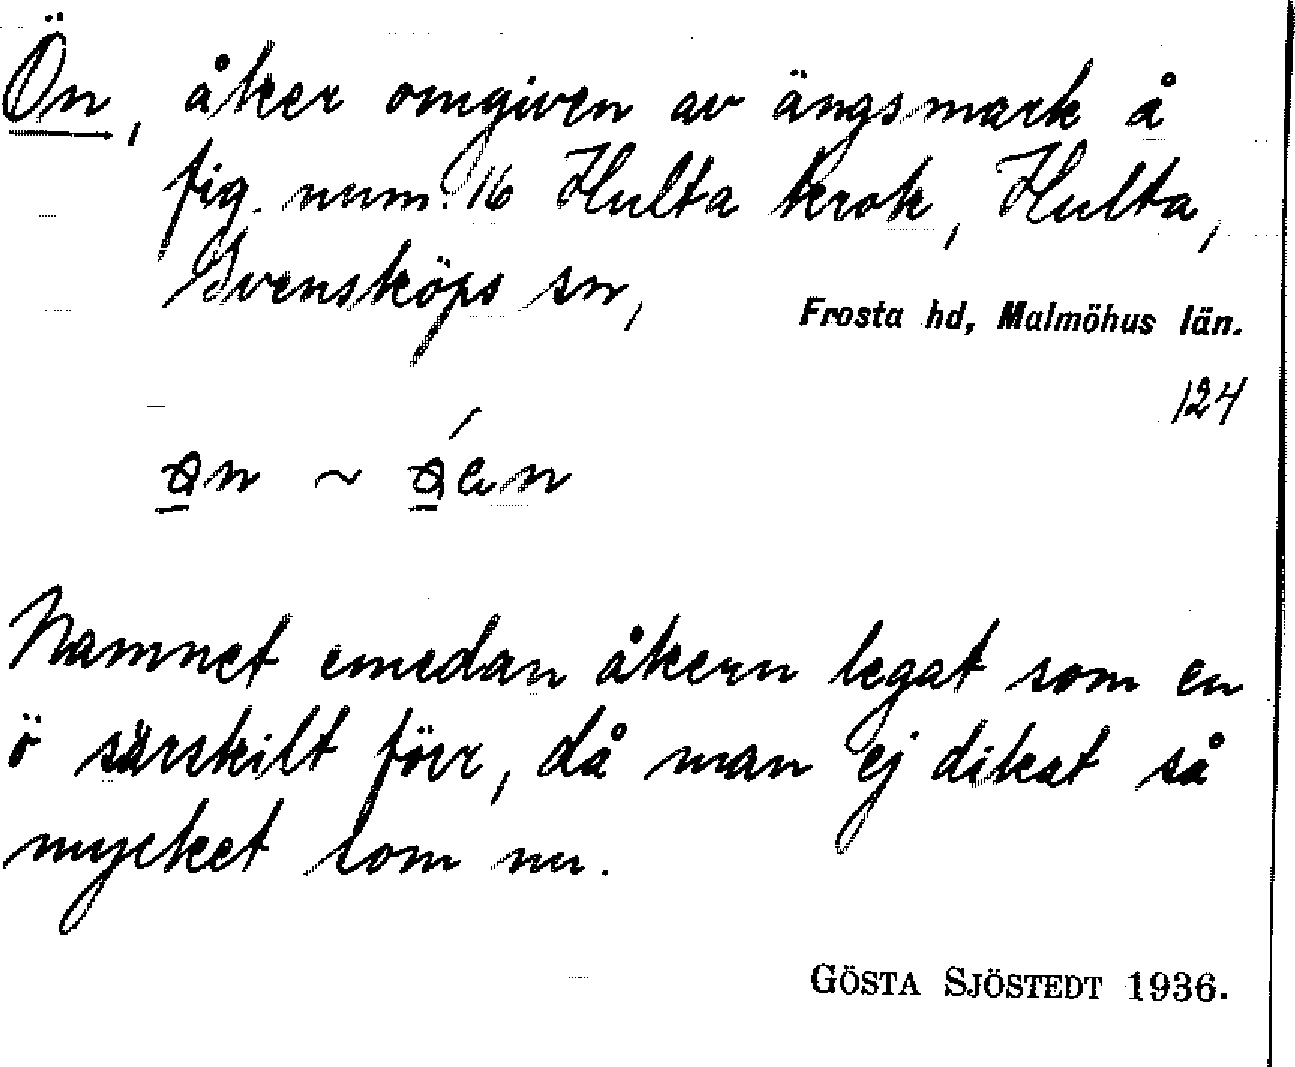 Ön, åker omgiven av ängsmark å
fig. num. 16 Hulta krok, Hulta,
Svensköps sn,
Frosta hd, Malmöhus län.
124
Namnet emedan åkern legat som en
ö särskilt förr, då man ej dikat så
mycket som nu.
GÖSTA SJÖSTEDT 1936.